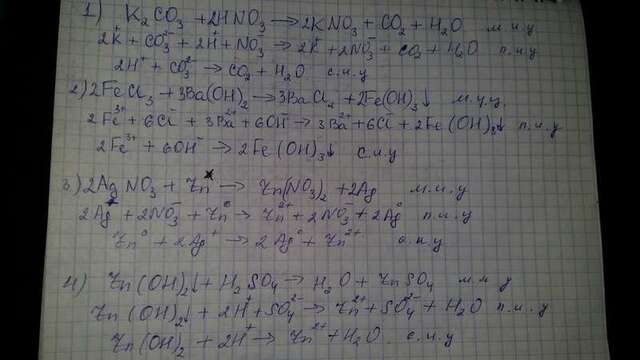 1) K₂CO₃ + 2HNO₃ → 2KNO₃ + CO₂ + H₂O м.и.у
2K⁺ + CO₃²⁻ + 2H⁺ + NO₃⁻ → 2K⁺ + 2NO₃⁻ + CO₂ + H₂O п.и.у
2H⁺ + CO₃²⁻ → CO₂ + H₂O с.и.у
2) 2FeCl₃ + 3Ba(OH)₂ → 3BaCl₂ + 2Fe(OH)₃↓ м.и.у.
2Fe³⁺ + 6Cl⁻ + 3Ba²⁺ + 6OH⁻ → 3Ba²⁺ + 6Cl⁻ + 2Fe(OH)₃↓ п.и.у
2Fe³⁺ + 6OH⁻ → 2Fe(OH)₃↓ с.и.у
3) 2AgNO₃ + Zn → Zn(NO₃)₂ + 2Ag м.и.у
2Ag⁺ + 2NO₃⁻ + Zn⁰ → Zn²⁺ + 2NO₃⁻ + 2Ag⁰ п.и.у
Zn⁰ + 2Ag⁺ → 2Ag⁰ + Zn²⁺ с.и.у
4) Zn(OH)₂↓ + H₂SO₄ → H₂O + ZnSO₄ м.и.у
Zn(OH)₂↓ + 2H⁺ + SO₄²⁻ → Zn²⁺ + SO₄²⁻ + H₂O п.и.у
Zn(OH)₂ + 2H⁺ → Zn²⁺ + H₂O с.и.у